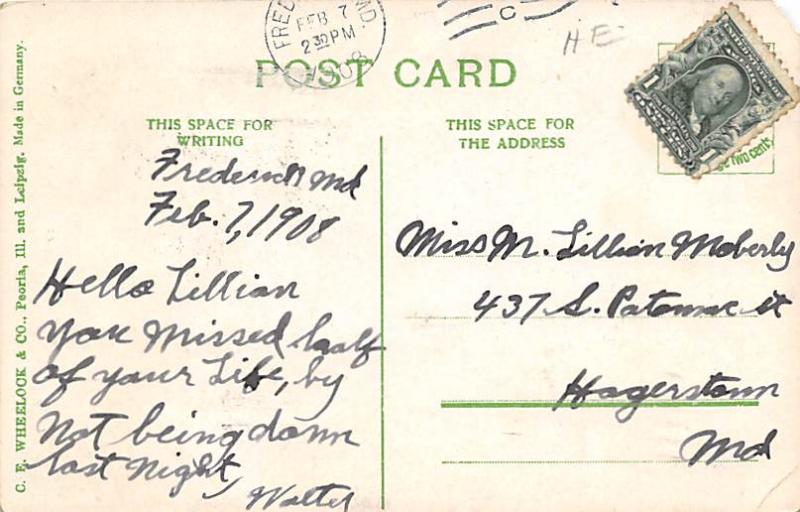 FEB 7
2 30 PM
1908
C
HE
POST CARD
THIS SPACE FOR
WRITING
THIS SPACE FOR
THE ADDRESS
two cents
C. E. WHEELOCK & CO., Peoria, Ill. and Leipzig. Made in Germany.
Frederick Md
Feb. 7, 1908
Hello Lillian
you missed half
of your Life, by
Not being down
last Night,
Walter
Miss M. Lillian Moberly
437 S. Patomac st
Hagerstown
Md